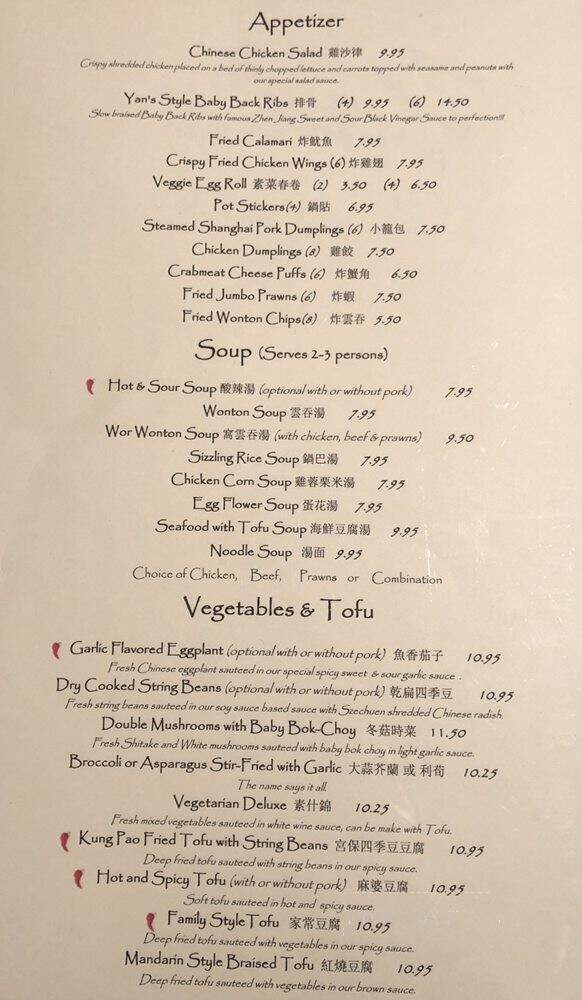 Appetizer
Chinese Chicken Salad 雞沙律 9.95
Crispy shredded chicken placed on a bed of thinly chopped lettuce and carrots topped with seasame and peanuts with
our special salad sauce.
Yan's Style Baby Back Ribs 排骨 (4) 9.95 (6) 14.50
Slow braised Baby Back Ribs with famous Zhen Jiang Sweet and Sour Black Vinegar Sauce to perfection!!!
Fried Calamari 炸魷魚 7.95
Crispy Fried Chicken Wings (6) 炸雞翅 7.95
Veggie Egg Roll 素菜春卷 (2) 3.50 (4) 6.50
Pot Stickers(4) 鍋貼 6.95
Steamed Shanghai Pork Dumplings (6) 小籠包 7.50
Chicken Dumplings (8) 雞餃 7.50
Crabmeat Cheese Puffs (6) 炸蟹角 6.50
Fried Jumbo Prawns (6) 炸蝦 7.50
Fried Wonton Chips(8) 炸雲吞 5.50
Soup (Serves 2-3 persons)
Hot & Sour Soup 酸辣湯 (optional with or without pork) 7.95
Wonton Soup 雲吞湯 7.95
Wor Wonton Soup 窩雲吞湯 (with chicken, beef & prawns) 9.50
Sizzling Rice Soup 鍋巴湯 7.95
Chicken Corn Soup 雞蓉栗米湯 7.95
Egg Flower Soup 蛋花湯 7.95
Seafood with Tofu Soup 海鮮豆腐湯 9.95
Noodle Soup 湯面 9.95
Choice of Chicken, Beef, Prawns or Combination
Vegetables & Tofu
Garlic Flavored Eggplant (optional with or without pork) 魚香茄子 10.95
Fresh Chinese eggplant sauteed in our special spicy sweet & sour garlic sauce .
Dry Cooked String Beans (optional with or without pork) 乾扁四季豆 10.95
Fresh string beans sauteed in our soy sauce based sauce with Szechuen shredded Chinese radish.
Double Mushrooms with Baby Bok-Choy 冬菇時菜 11.50
Fresh Shitake and White mushrooms sauteed with baby bok choy in light garlic sauce.
Broccoli or Asparagus Stir-Fried with Garlic 大蒜芥蘭 或 利荀 10.25
The name says it all.
Vegetarian Deluxe 素什錦 10.25
Fresh mixed vegetables sauteed in white wine sauce, can be make with Tofu.
Kung Pao Fried Tofu with String Beans 宮保四季豆豆腐 10.95
Deep fried tofu sauteed with string beans in our spicy sauce.
Hot and Spicy Tofu (with or without pork) 麻婆豆腐 10.95
Soft tofu sauteed in hot and spicy sauce.
Family Style Tofu 家常豆腐 10.95
Deep fried tofu sauteed with vegetables in our spicy sauce.
Mandarin Style Braised Tofu 紅燒豆腐 10.95
Deep fried tofu sauteed with vegetables in our brown sauce.